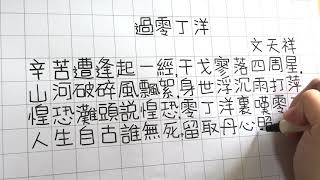 過零丁洋
文天祥
辛苦遭逢起一經,干戈寥落四周星.
山河破碎風飄絮,身世浮沉雨打萍
惶恐灘頭說惶恐,零丁洋裏嘆零
人生自古誰無死,留取丹心照